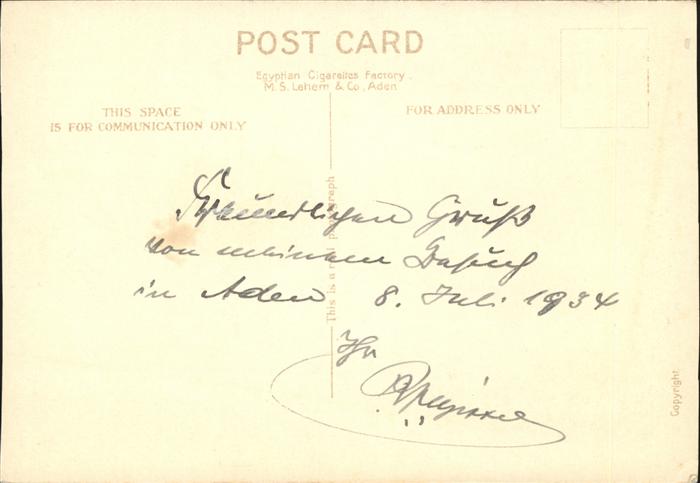 POST CARD
Egyptian Cigarettes Factory.
M. S. Lehem & Co., Aden
THIS SPACE
IS FOR COMMUNICATION ONLY
FOR ADDRESS ONLY
This is a real photograph
Freundlichen Gruß
von meinem Besuch
in Aden 8. Juli 1934
Ihr
Copyright